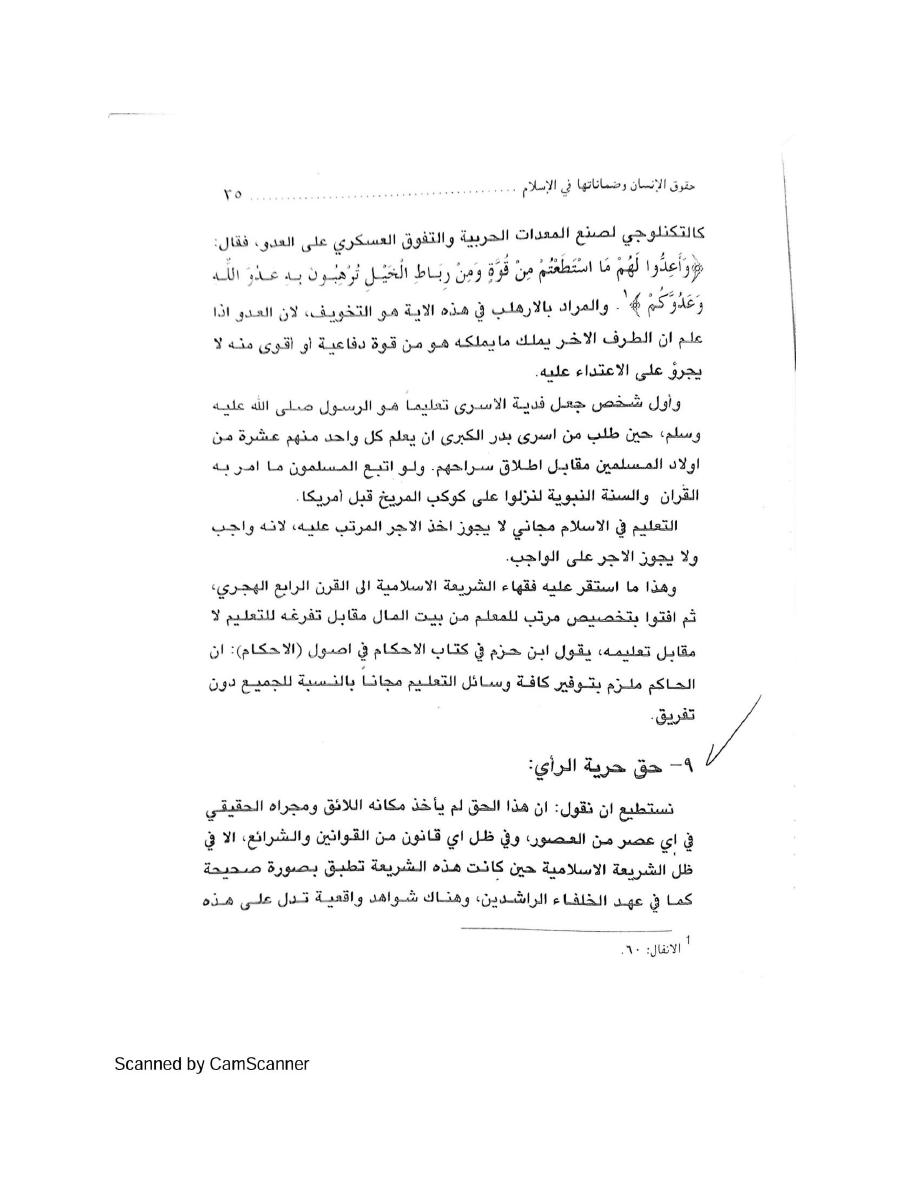 حقوق الإنسان وضماناتها في الإسلام ........................................ ٣٥
كالتكنلوجي لصنع المعدات الحربية والتفوق العسكري على العدو، فقال:
﴿وَأَعِدُّوا لَهُمْ مَا اسْتَطَعْتُمْ مِنْ قُوَّةٍ وَمِنْ رِبَاطِ الْخَيْلِ تُرْهِبُونَ بِهِ عَدُوَّ اللَّهِ
وَعَدُوَّكُمْ﴾١. والمراد بالارهلب في هذه الاية هو التخويف، لان العدو اذا
علم ان الطرف الاخر يملك مايملكه هو من قوة دفاعية أو أقوى منه لا
يجرؤ على الاعتداء عليه.
وأول شخص جعل فدية الاسرى تعليماً هو الرسول صلى الله عليه
وسلم، حين طلب من اسرى بدر الكبرى ان يعلم كل واحد منهم عشرة من
اولاد المسلمين مقابل اطلاق سراحهم. ولو اتبع المسلمون ما امر به
القران والسنة النبوية لنزلوا على كوكب المريخ قبل أمريكا.
التعليم في الاسلام مجاني لا يجوز اخذ الاجر المرتب عليه، لانه واجب
ولا يجوز الاجر على الواجب.
وهذا ما استقر عليه فقهاء الشريعة الاسلامية الى القرن الرابع الهجري،
ثم افتوا بتخصيص مرتب للمعلم من بيت المال مقابل تفرغه للتعليم لا
مقابل تعليمه، يقول ابن حزم في كتاب الاحكام في اصول (الاحكام): ان
الحاكم ملزم بتوفير كافة وسائل التعليم مجاناً بالنسبة للجميع دون
تفريق.
٩- حق حرية الرأي:
نستطيع ان نقول: ان هذا الحق لم يأخذ مكانه اللائق ومجراه الحقيقي
في اي عصر من العصور، وفي ظل اي قانون من القوانين والشرائع، الا في
ظل الشريعة الاسلامية حين كانت هذه الشريعة تطبق بصورة صحيحة
كما في عهد الخلفاء الراشدين، وهناك شواهد واقعية تدل على هذه
1 الانفال: ٦٠.
Scanned by CamScanner